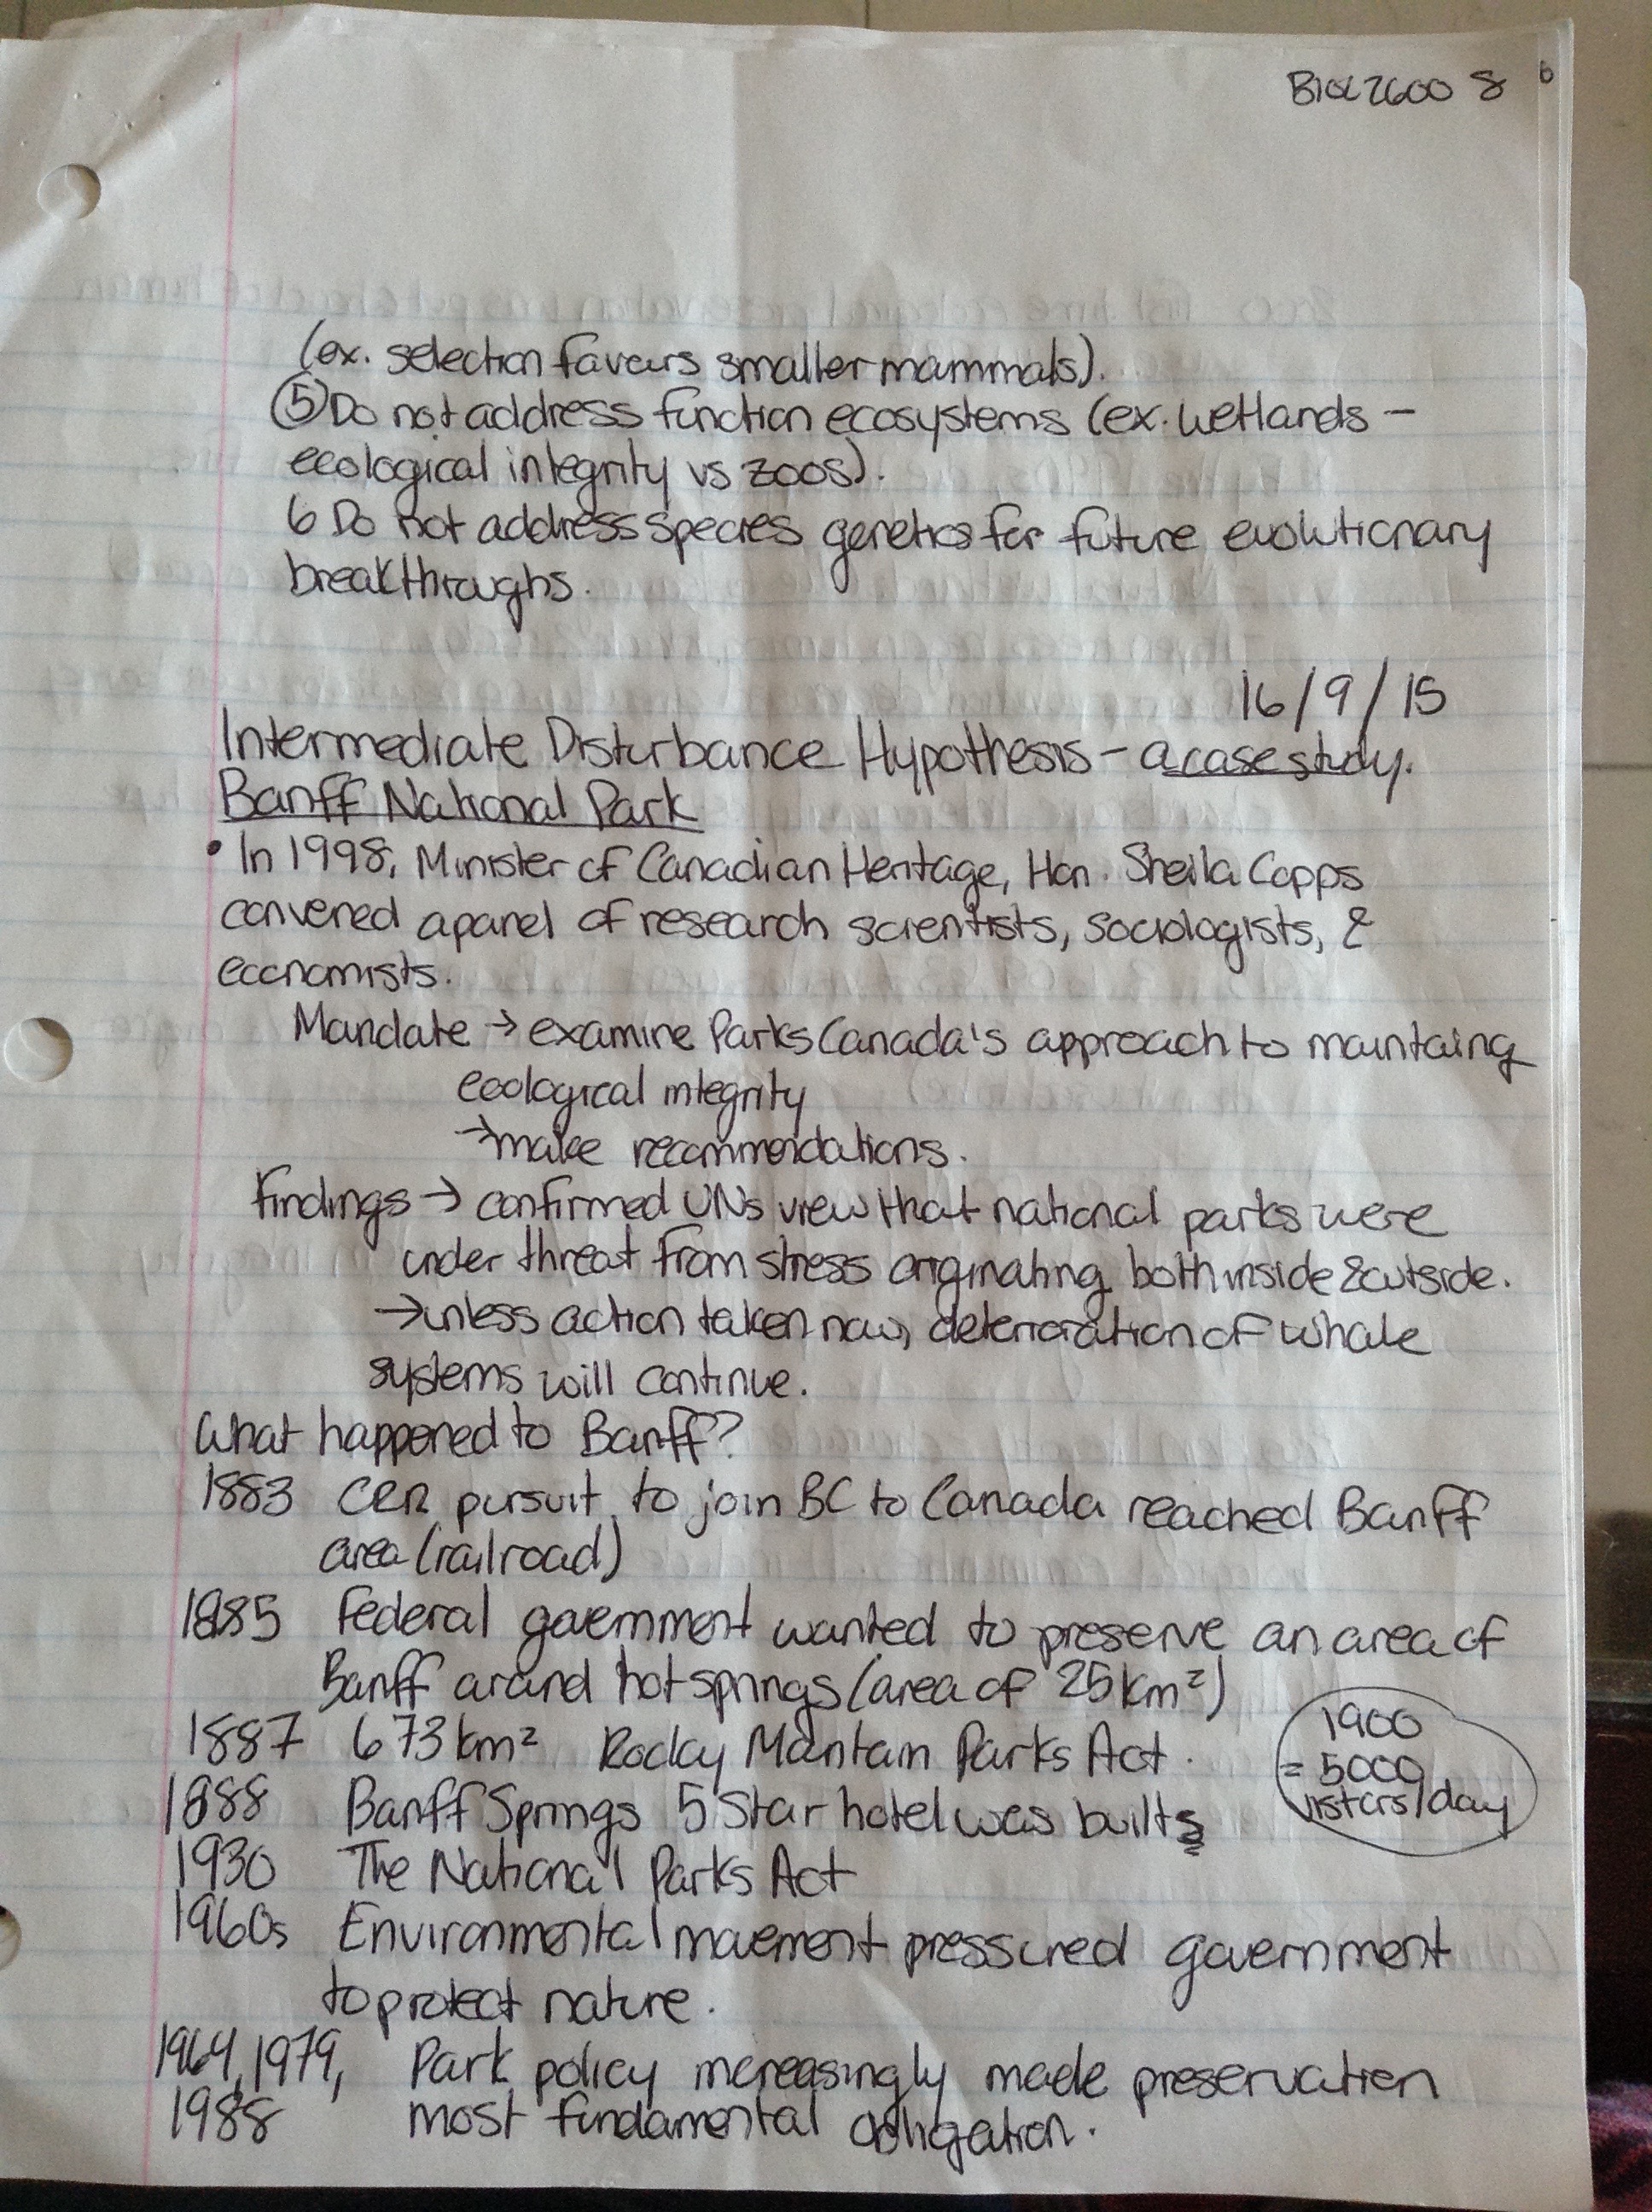 BIOL2600 8
(ex. selection favours smaller mammals).
⑤ Do not address function ecosystems (ex. wetlands -
ecological integrity vs zoos).
6 Do not address species genetics for future evolutionary
breakthroughs.
16/9/15
Intermediate Disturbance Hypothesis - a case study.
Banff National Park
• In 1998, Minister of Canadian Heritage, Hon. Sheila Copps
convened a panel of research scientists, sociologists, &
economists.
Mandate → examine Parks Canada's approach to maintaing
ecological integrity
→ make recommendations.
Findings → confirmed UNs view that national parks were
under threat from stress originating both inside & outside.
→ unless action taken now, deterioration of whole
systems will continue.
What happened to Banff?
1883 CRR pursuit to join BC to Canada reached Banff
area (railroad)
1885 Federal government wanted to preserve an area of
Banff around hot springs (area of 25 km²)
1887 673 km² Rocky Mountain Parks Act.
1900
= 5000
vistors/day
1888 Banff Springs 5 Star hotel was built
1930 The National Parks Act
1960s Environmental movement pressured government
to protect nature.
1964, 1979, Park policy increasingly made preservation
1988 most fundamental obligation.